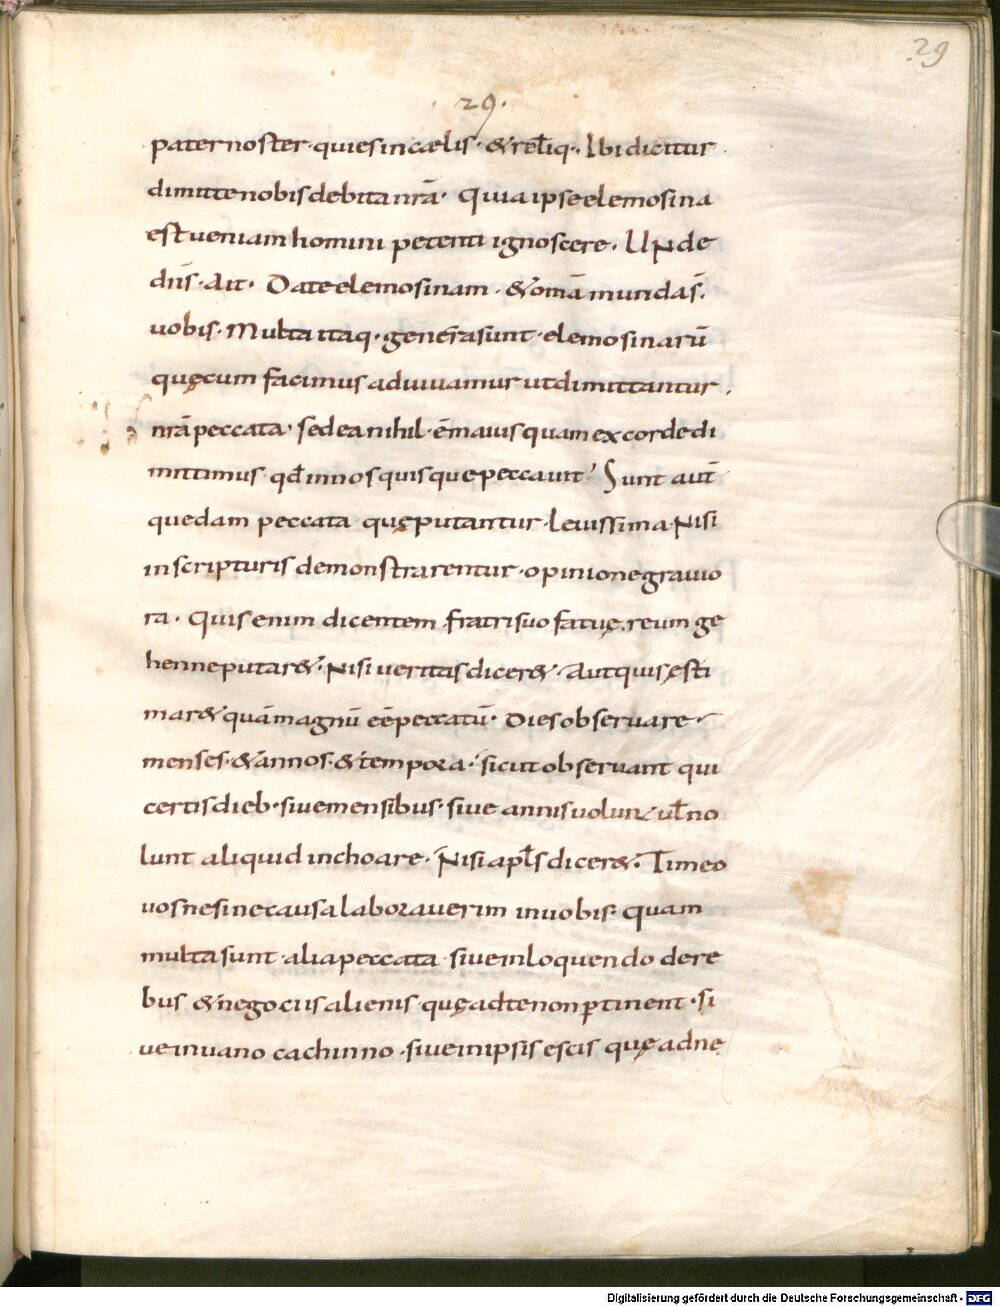 29
29.
pater noster qui es in cælis · & reliq̅. Ubi dicitur
dimitte nobis debita nr̄ā. Quia ipse elemosina
est ueniam homini petenti ignoscere. UNde
dn̄s · Ait. Date elemosinam · & om̄ā mundas̄.
uobis. Multa itaq · genēra sunt · elemosinarū
quęcum facimus adiuuamur ut dimittantur.
nr̄ā peccata · sed ea nihil · ē maius quam ex corde di
mittimus · qd̄ in nos quisque peccauit. Sunt aut̄
quedam peccata quę putantur leuissima Nisi
in scripturis demonstrarentur · opinione grauio
ra. Quis enim dicentem fratri suo fatuę. reum ge
henne putar& · Nisi ueritas dicer&. Aut quis ęsti
mar& quām magnū eē peccatū. Dies obseruare
menses · & annos · & tempora · sicut obseruant qui
certis dieb · siue mensibus · siue annis uolunt ul̄ no
lunt aliquid inchoare. Nisi apl̄s dicer&. Timeo
uos ne sine causa laborauerim in uobis. Quam
multa sunt alia peccata siue in loquendo de re
bus & negociis alienis quę ad te non p̱tinent · si
ue in uano cachinno · siue in ipsis escis quę ad ne
Digitalisierung gefördert durch die Deutsche Forschungsgemeinschaft - DFG